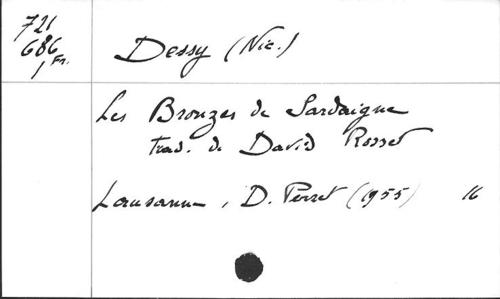 721
686
1 Fr.
Dessy (Nic.)
Les Bronzes de Sardaigne
trad. de David Rosset
Lausanne, D. Perret (1955) 16